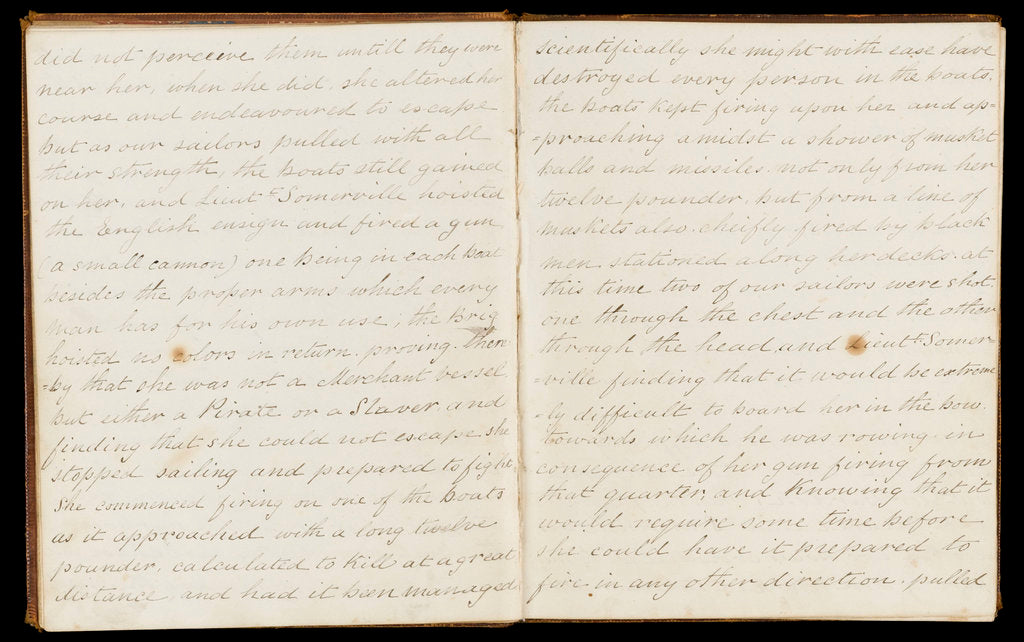 did not perceive them untill they were
near her, when she did, she altered her
course and endeavoured to escape
but as our sailors pulled with all
their strength, the boats still gained
on her, and Lieut.t Somerville hoisted
the English ensign and fired a gun
(a small cannon) one being in each boat
besides the proper arms which every
man has for his own use, the Brig
hoisted no colors in return. proving. there
=by that she was not a Merchant vessel
but either a Pirate or a Slaver, and
finding that she could not escape, she
stopped sailing and prepared to fight,
She commenced firing on one of the boats
as it approached with a long twelve
pounder, calculated to kill at a great
distance, and had it been managed
scientifically she might with ease have
destroyed every person in the boats.
the boats kept firing upon her and ap=
=proaching amidst a shower of musket
balls and missiles, not only from her
twelve pounder, but from a line of
muskets also. cheifly fired by black
men stationed along her decks. at
this time two of our sailors were shot.
one through the chest and the other
through the head, and Lieut.t Somer=
=ville finding that it would be extreme
=ly difficult to board her in the bow.
towards which he was rowing. in
consequence of her gun firing from
that quarter, and knowing that it
would require some time before
she could have it prepared to
fire in any other direction. pulled